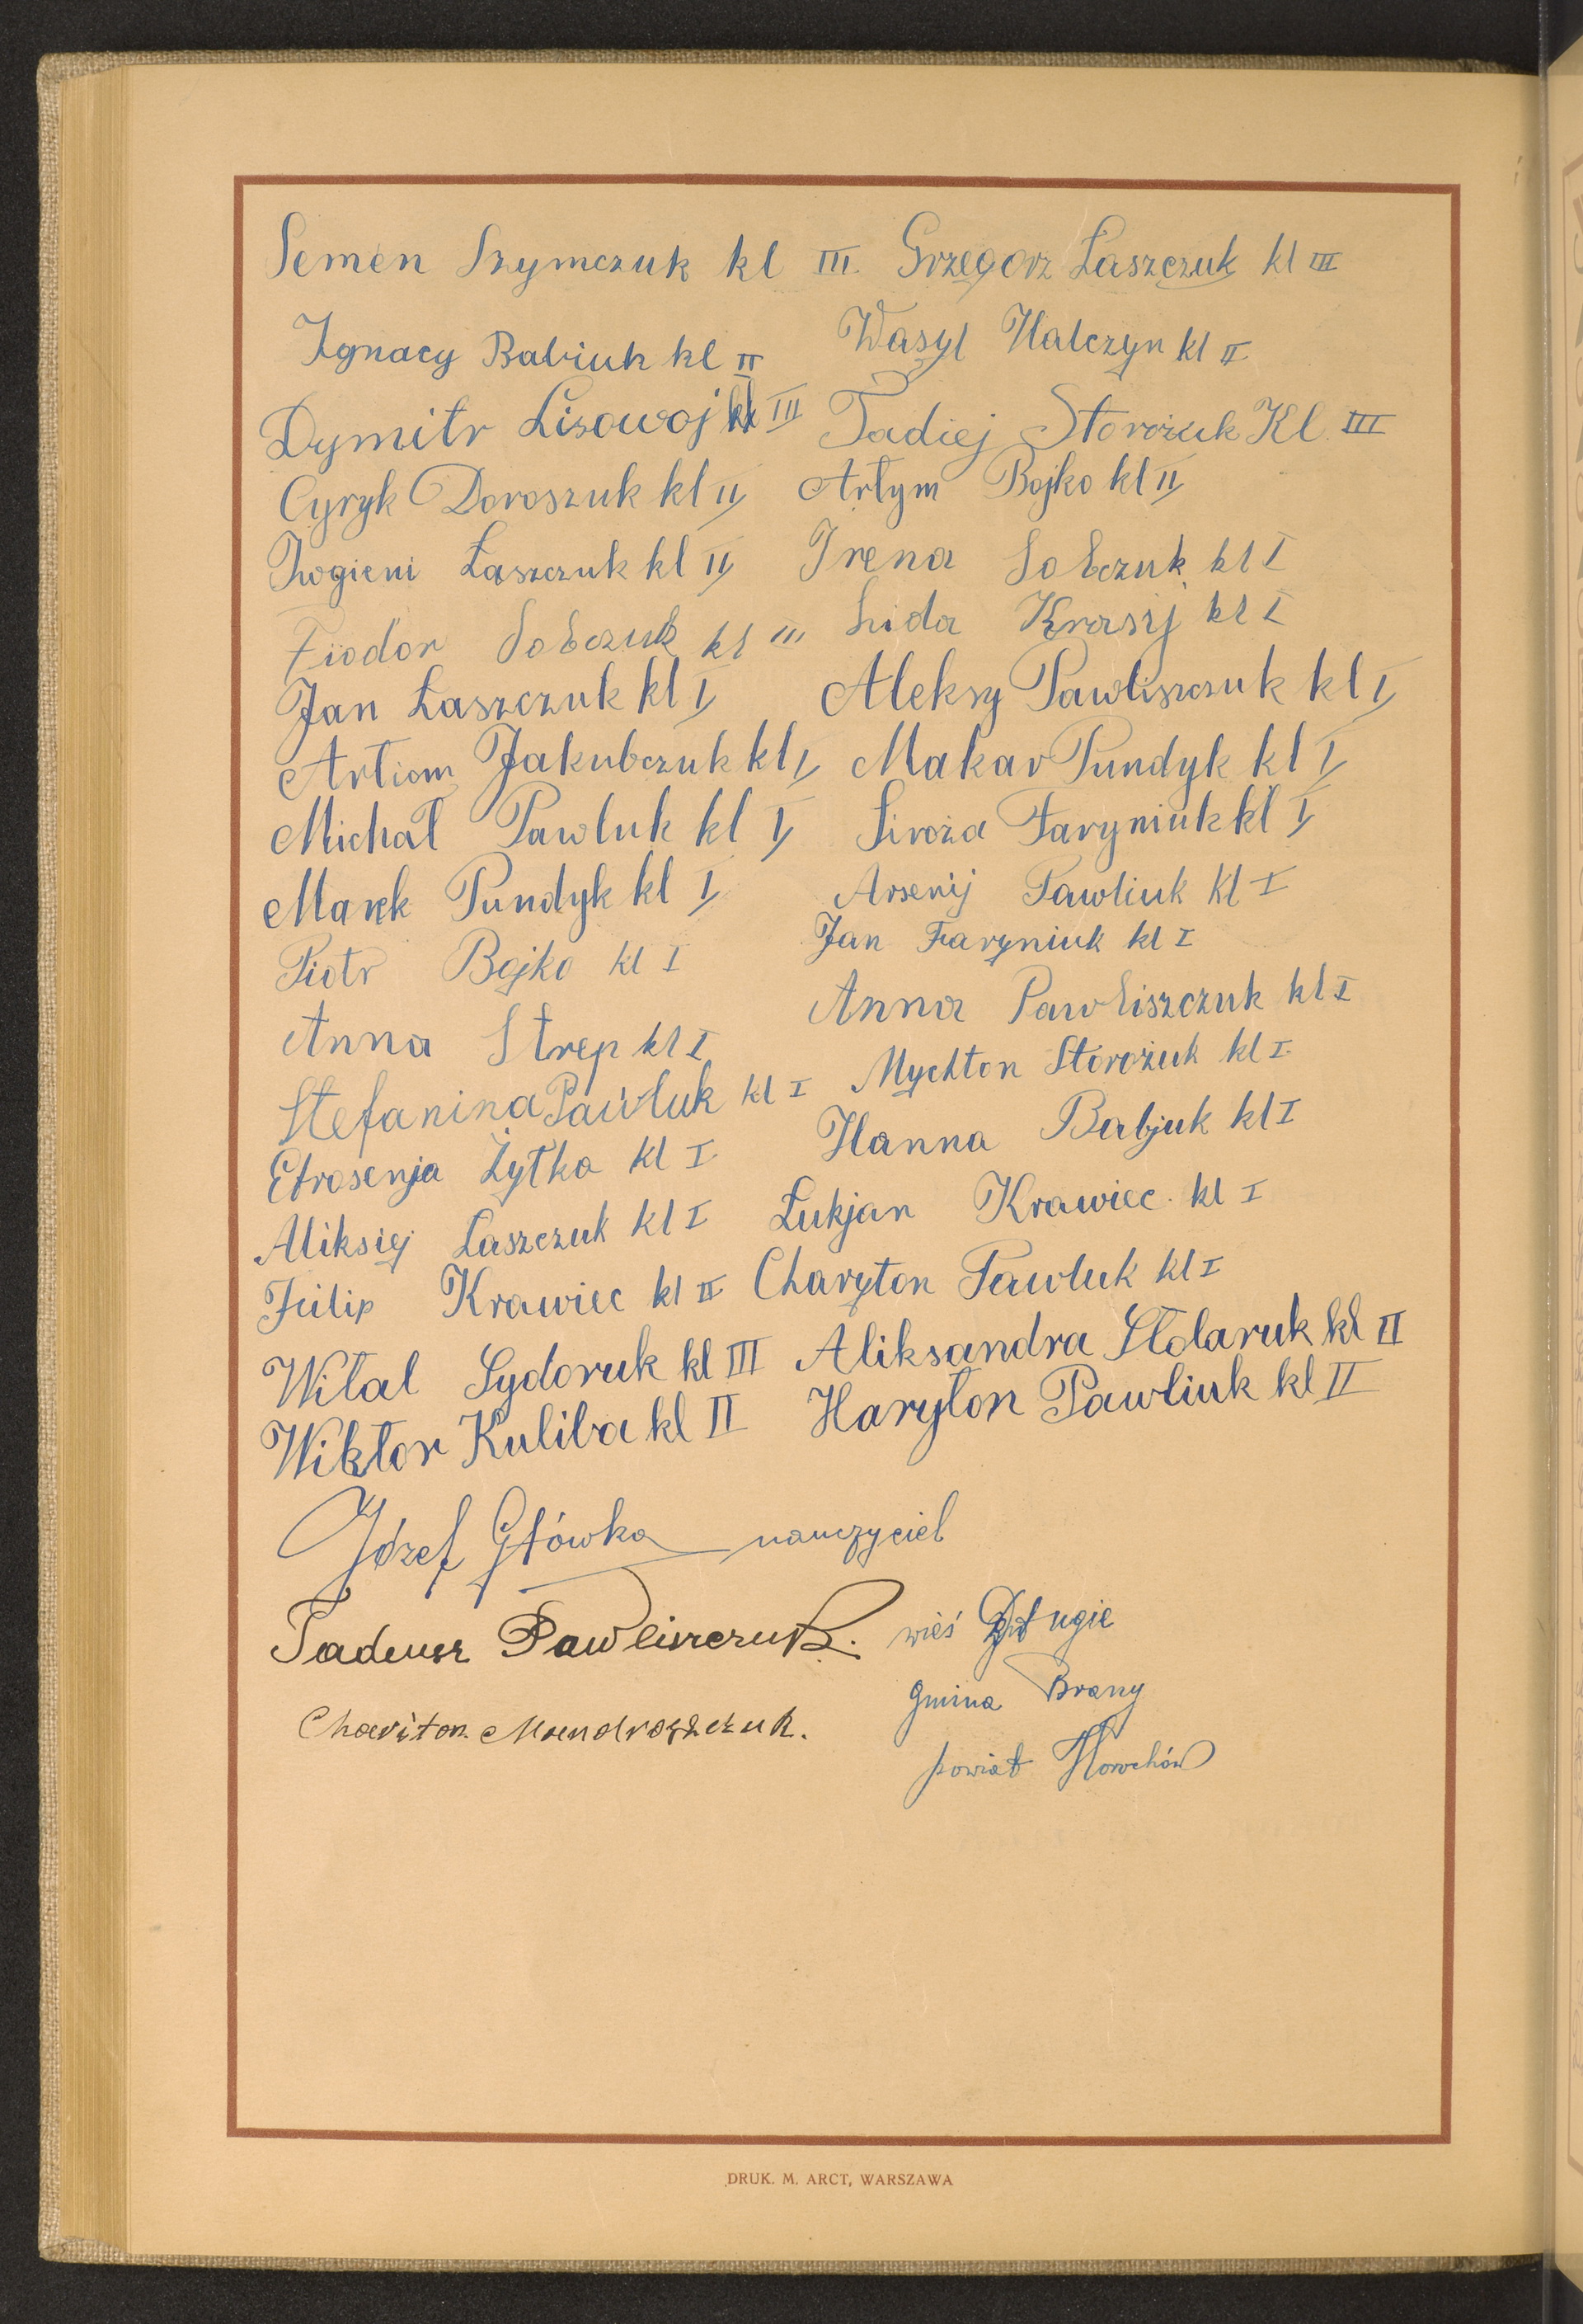 Semen Szymczuk kl III. Grzegorz Łaszczuk kl III
Ignacy Babiuk kl II Wasyl Halczyn kl II
Dymitr Lisowoj kl III Tadiej Storożuk Kl. III
Cyryk Doroszuk kl II Artym Bojko kl II
Iwogieni Łaszczuk kl II Irena Sobczuk kl I
Fiodor Sobczuk kl III Lida Krasij kl I
Jan Łaszczuk kl I Aleksy Pawliszczuk kl I
Artiom Jakubczuk kl I Makar Pundyk kl I
Michał Pawluk kl I Siroża Faryniuk kl I
Marek Pundyk kl I Arsenij Pawliuk kl I
Piotr Bojko kl I Jan Faryniuk kl I
Anna Strep kl I Anna Pawliszczuk kl I
Stefanina Pawluk kl I Mychton Storożuk kl I
Efrosenja Żytka kl I Hanna Babjuk kl I
Aliksiej Łaszczuk kl I Łukjan Krawiec kl I
Filip Krawiec kl II Charyton Pawluk kl I
Wital Sydoruk kl III Aliksandra Stolaruk kl II
Wiktor Kuliba kl II Haryton Pawliuk kl II
Józef Główka nauczyciel
Tadeusz Pawliszczuk. wieś Długie
gmina Brany
Chariton Mandroszczuk.
powiat Horochów
DRUK. M. ARCT, WARSZAWA